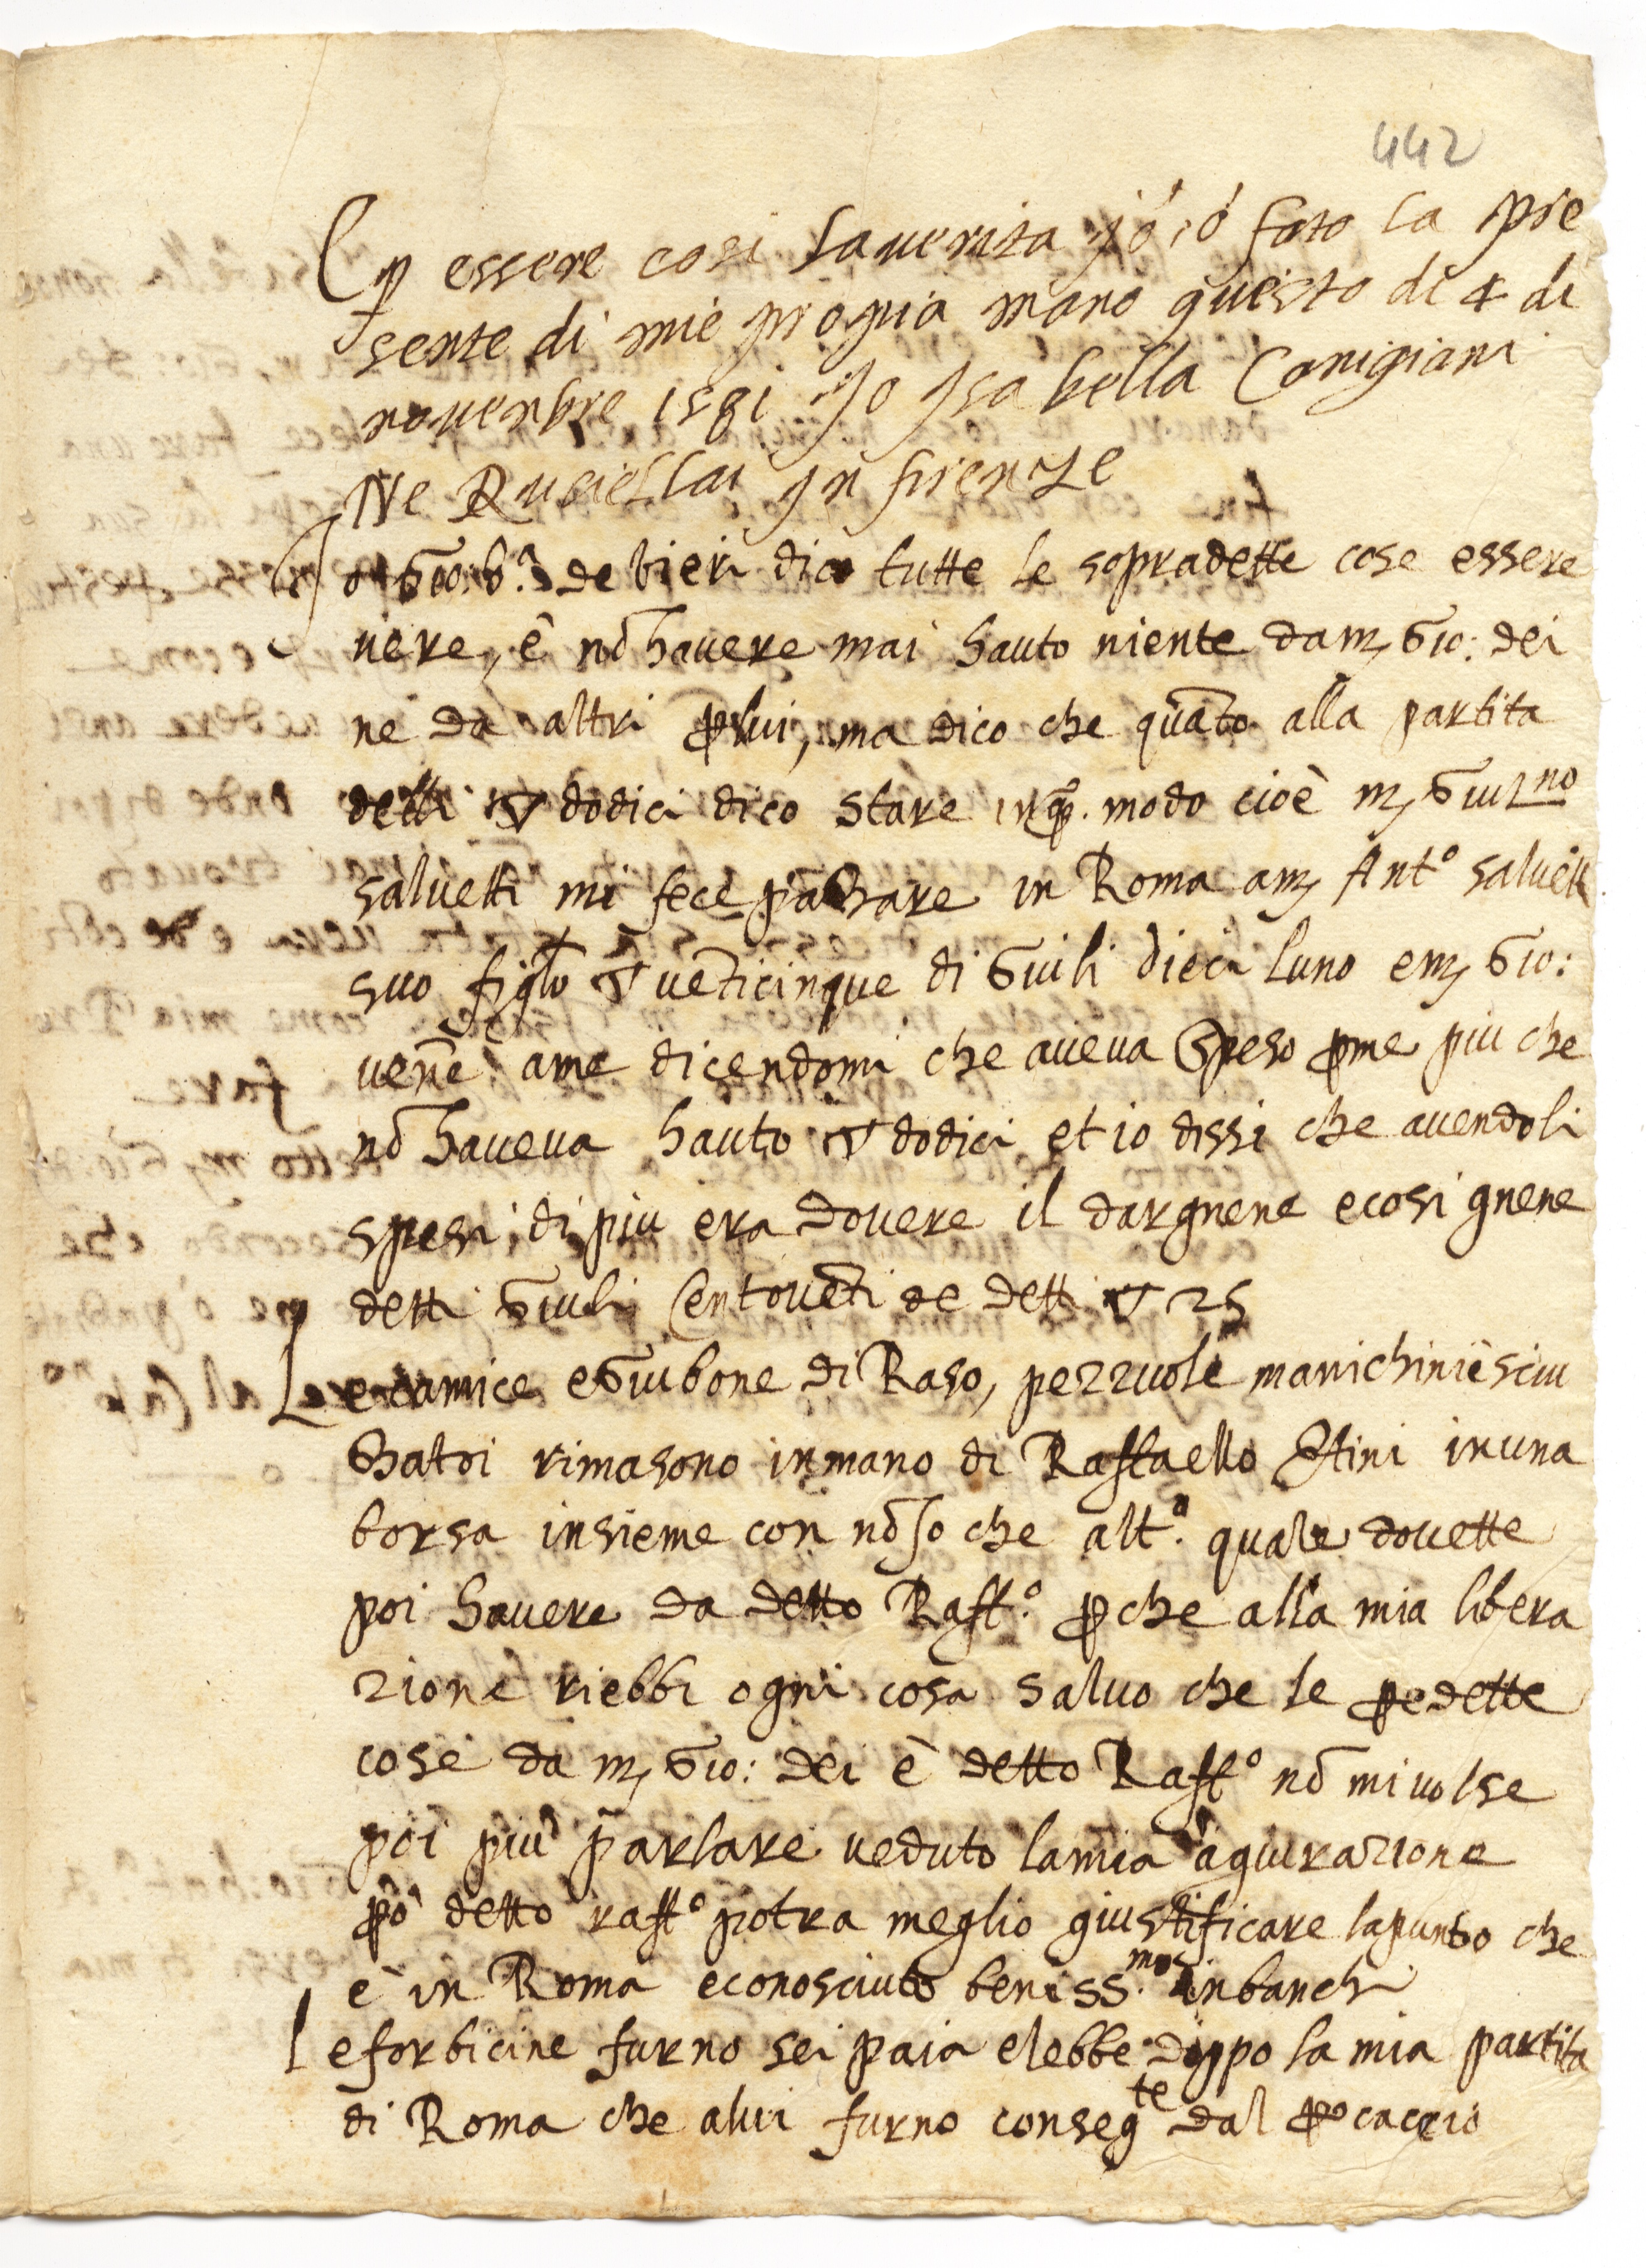 442
E p essere cosi la uerita jo ó fato la pre
sente di mie propia mano questo di 4 di
novenbre 1581 Jo Jsabella Conigiani
Ne Ruciellai Jn firenze
Jo Gio: b.a de bieri dico tutte le sopradette cose essere
uere, è nō havere mai hauto niente da mʒ Gio: dei
ne da altri ꝑ lui, ma dico che quāto alla partita
delli ▽ dodici dico stare in qo. modo cioè mʒ Giul.no
salvetti mi fece pagare in Roma a mʒ Ant.o salvetti
suo figlo ▽ uēticinque di Giuli dieci luno e mʒ Gio:
uēne ame dicendomi che aueva speso ꝑme piu che
nō haveva hauto ▽ dodici et io dissi che avendoli
spesi di piu era dovere il dargnene ecosi gnene
detti Giuli Centouēti de detti ▽ 25
Le camice e Giubone di Raso, pezzuole manichini e sciu
gatoi rimasono inmano di Raffaello inuna
borsa insieme con nō so che alt.o quale dovette
poi havere da detto Raff.o ꝑche alla mia libera
zione riebbi ogni cosa salvo che le ꝑedette
cose da mʒ Gio: dei è detto Raff.o nō mi volse
poi più parlare veduto lamia
ꝑò detto raff.o potra meglio giustificare lapunto che
e in Roma econosciuto beniss.mo inbanchi
Le forbicine furno sei paia elebbe doppo la mia partita
di Roma che alui furno conseg.te dal ꝓcaccio